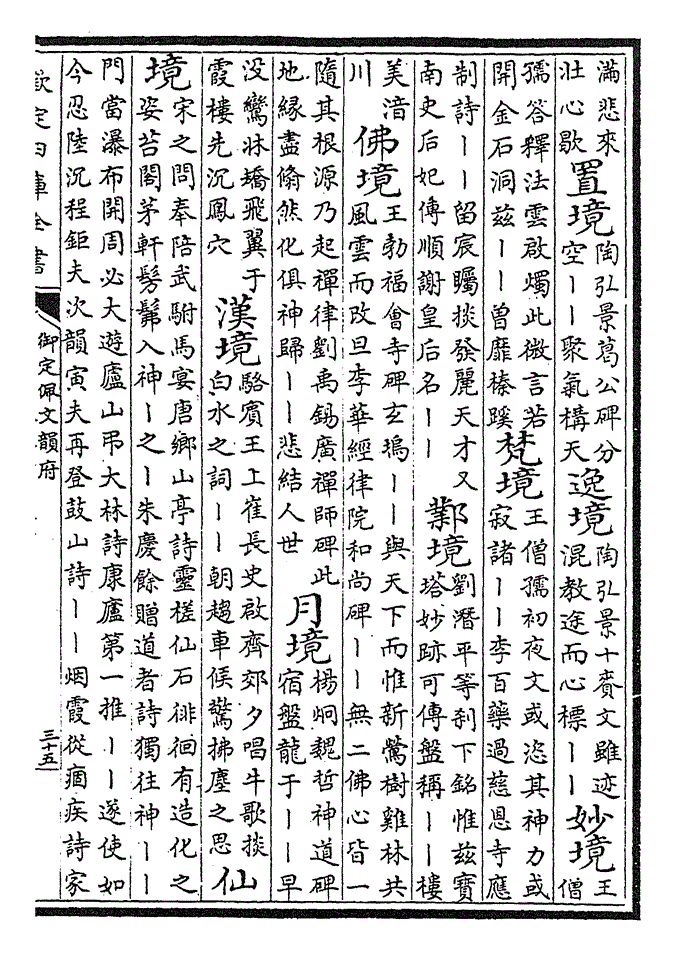 滿悲來
壯心歇
置境
陶弘景葛公碑分
空丨丨聚氣構天
逸境
陶弘景十賚文雖迹
混教途而心標丨丨
妙境
王
僧
孺答釋法雲啟燭此微言若
開金石洞兹丨丨曾靡榛蹊
梵境
王僧孺初夜文或恣其神力或
寂諸丨丨李百藥過慈恩寺應
制詩丨丨留宸矚掞發麗天才又
南史后妃傳順謝皇后名丨丨
鄴境
劉潛平等刹下銘惟兹寶
塔妙跡可傳盤稱丨丨樓
美湆
川
佛境
王勃福會寺碑玄塢丨丨與天下而惟新鶯樹雞林共
風雲而改旦李華經律院和尚碑丨丨無二佛心皆一
隨其根源乃起禪律劉禹錫廣禪師碑此
地緣盡翛然化俱神歸丨丨悲結人世
月境
楊炯魏哲神道碑
宿盤龍于丨丨早
没鸞牀矯飛翼于
霞樓先沉鳳穴
漢境
駱賓王上崔長史啟齊郊夕唱牛歌掞
白水之詞丨丨朝趨車候驚拂塵之思
仙
境
宋之問奉陪武駙馬宴唐鄉山亭詩靈槎仙石徘徊有造化之
姿苔閣茅軒髣髴入神丨之丨朱慶餘贈道者詩獨往神丨丨
門當瀑布開周必大遊廬山弔大林詩康廬第一推丨丨遂使如
今忍陸沉程鉅夫次韻寅夫再登鼓山詩丨丨烟霞從痼疾詩家
欽定四庫全書
御定佩文韻府
三十五